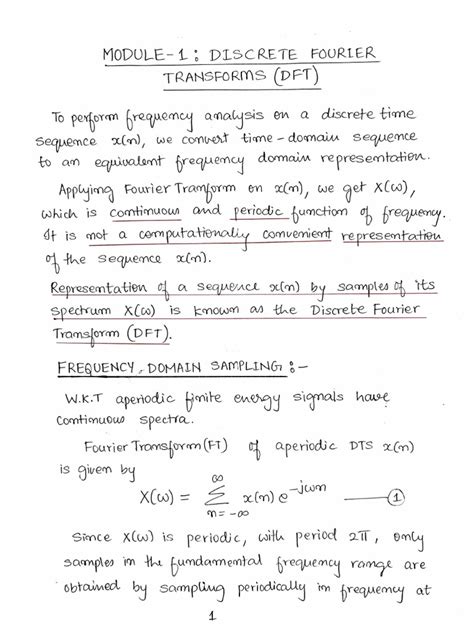 MODULE-1: DISCRETE FOURIER
TRANSFORMS (DFT)
To perform frequency analysis on a discrete time
sequence x(n), we convert time-domain sequence
to an equivalent frequency domain representation.
Applying Fourier Transform on x(n), we get X(ω),
which is continuous and periodic function of frequency.
It is not a computationally convenient representation
of the sequence x(n).
Representation of a sequence x(n) by samples of its
spectrum X(ω) is known as the Discrete Fourier
Transform (DFT).
FREQUENCY DOMAIN SAMPLING :-
W.K.T aperiodic finite energy signals have
continuous spectra.
Fourier Transform (FT) of aperiodic DTS x(n)
is given by
X(ω) = ∞ Σ n=-∞ x(n) e^-jωn — ①
Since X(ω) is periodic, with period 2π, only
samples in the fundamental frequency range are
obtained by sampling periodically in frequency at
1